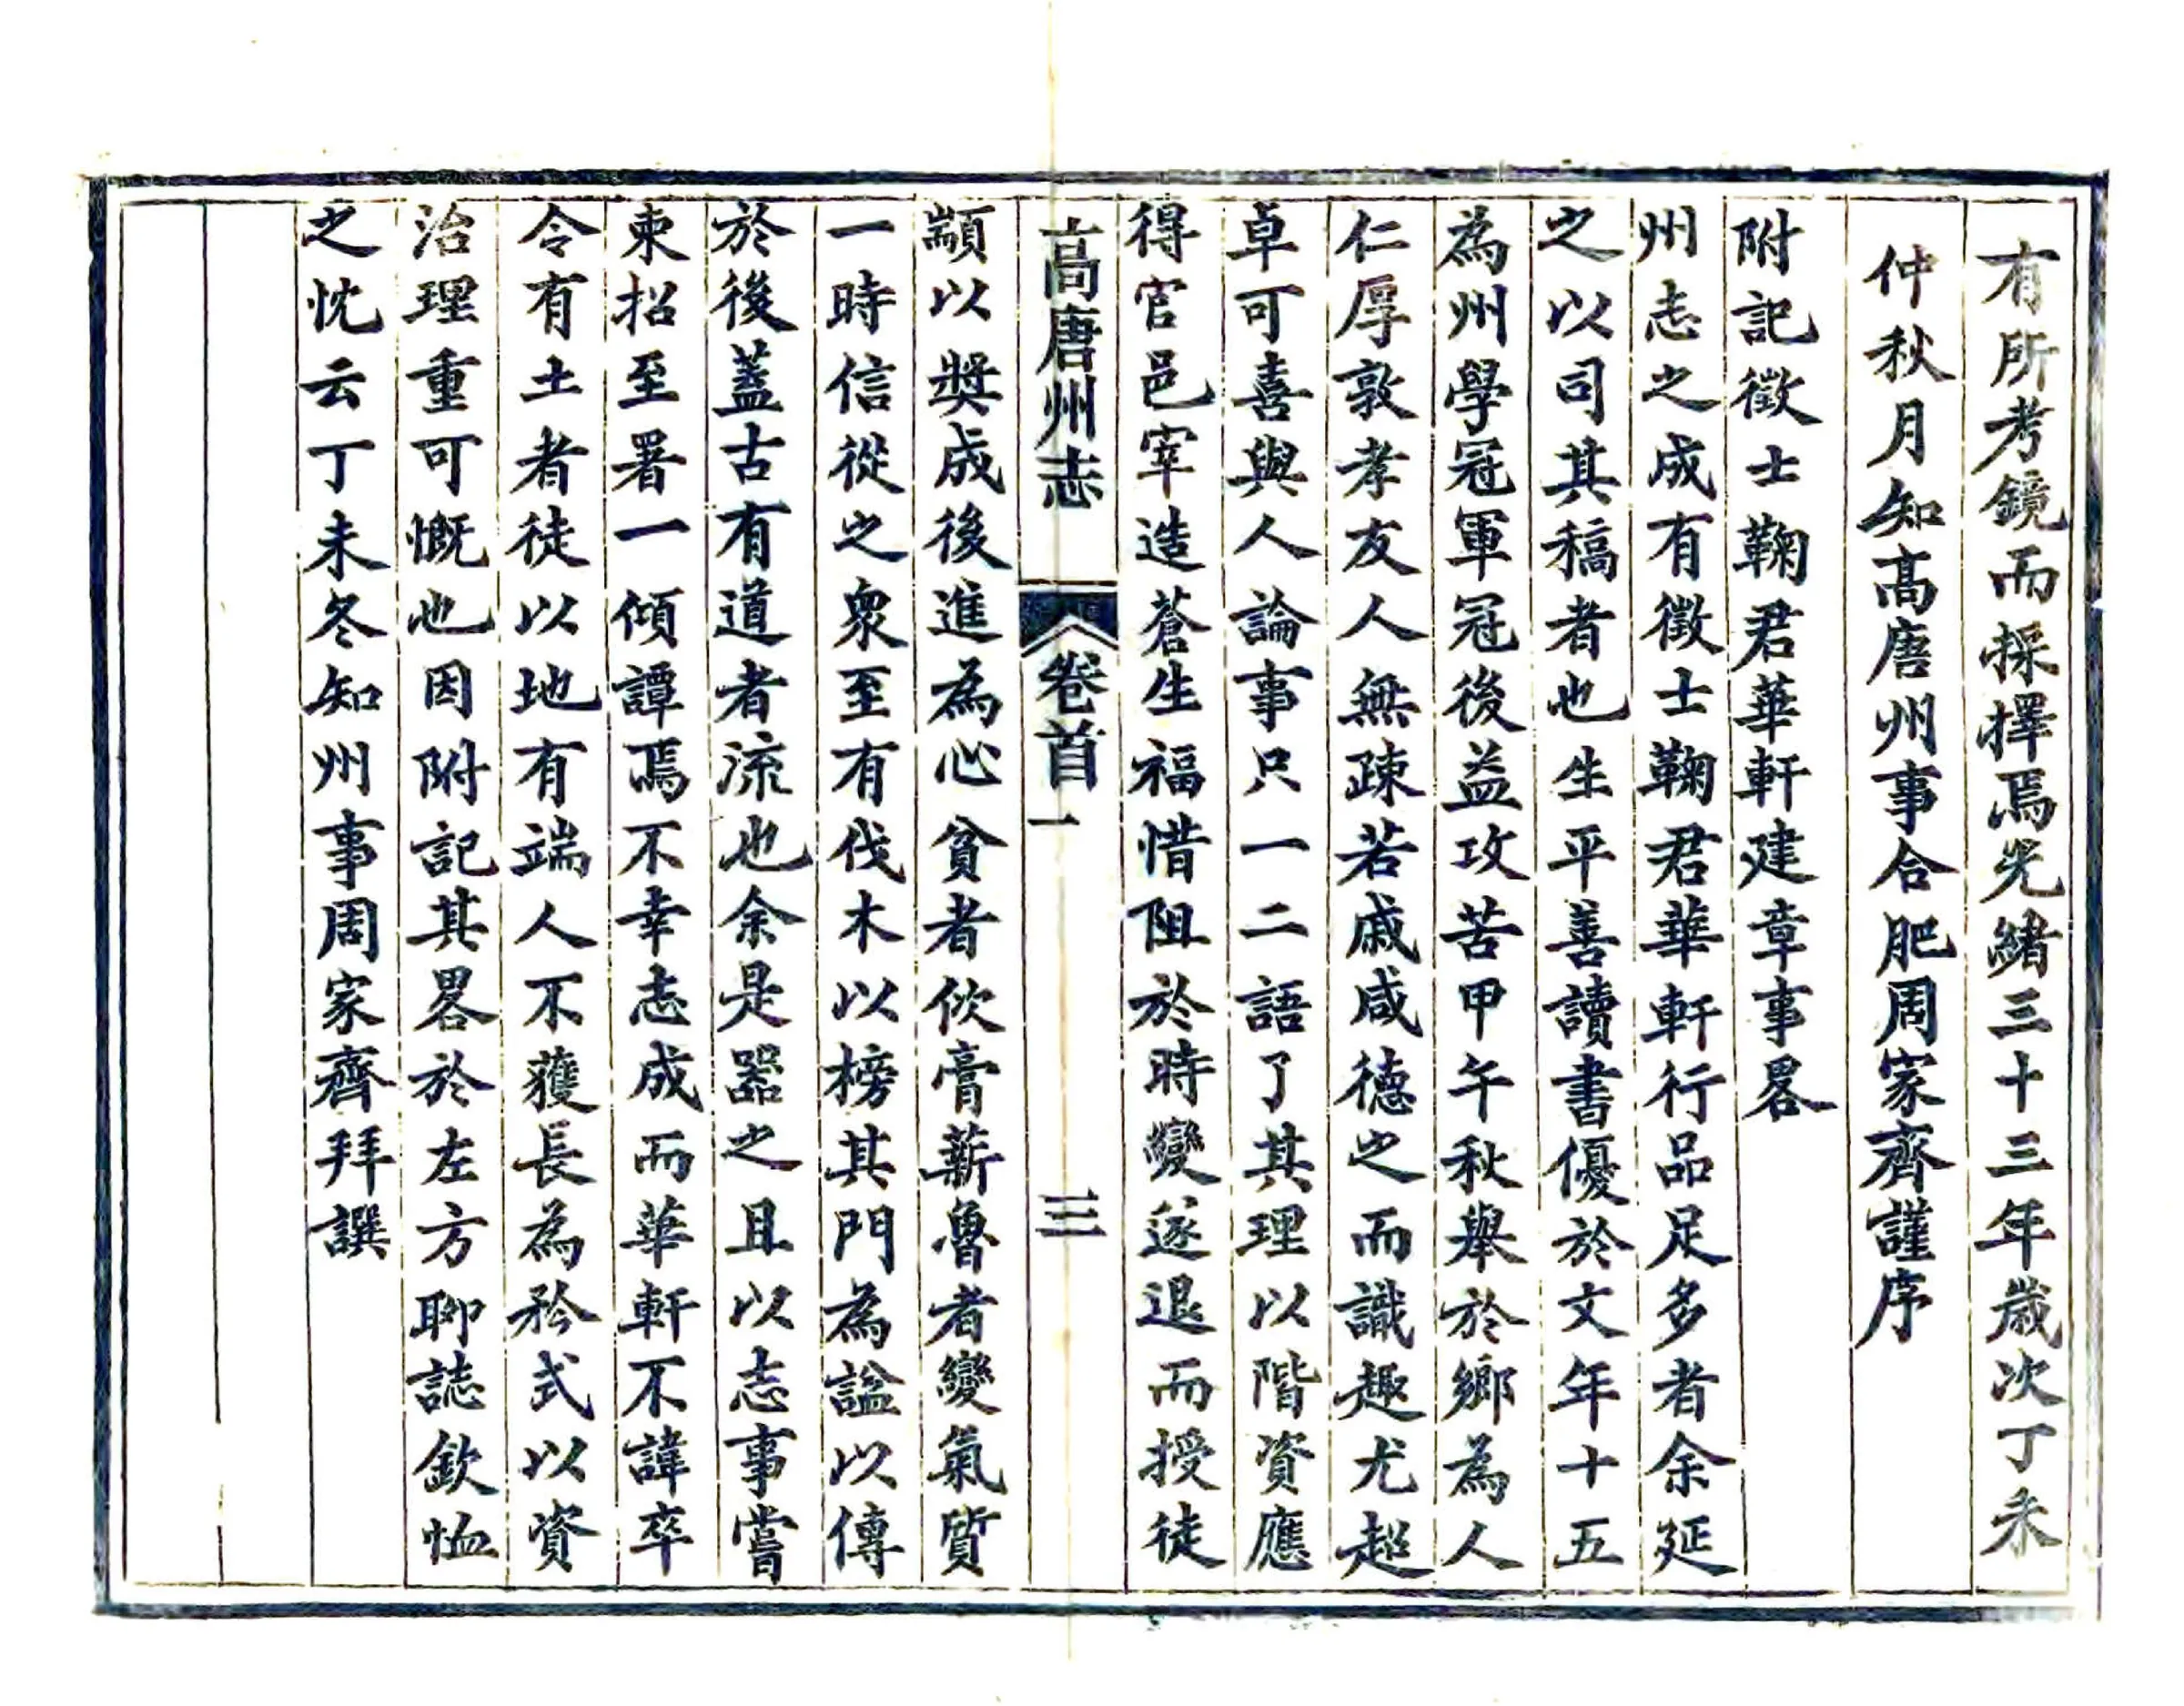 有所考鏡而採擇焉光緒三十三年歲次丁未
仲秋月知高唐州事合肥周家齊謹序
附記徵士鞠君華軒建章事畧
州志之成有徵士鞠君華軒行品足多者余延
之以司其稿者也生平善讀書優於文年十五
為州學冠軍冠後益攻苦甲午秋舉於鄉為人
仁厚敦孝友人無疎若戚咸德之而識趣尤超
卓可喜與人論事只一二語了其理以階資應
得官邑宰造蒼生福惜阻於時變遂退而授徒
高唐州志
卷首一
三
顓以獎成後進為心貧者佽膏薪魯者變氣質
一時信從之衆至有伐木以榜其門為諡以傳
於後蓋古有道者流也余是器之且以志事嘗
柬招至署一傾譚焉不幸志成而華軒不諱卒
令有土者徒以地有端人不獲長為矜式以資
治理重可慨也因附記其畧於左方聊誌欽恤
之忱云丁未冬知州事周家齊拜譔